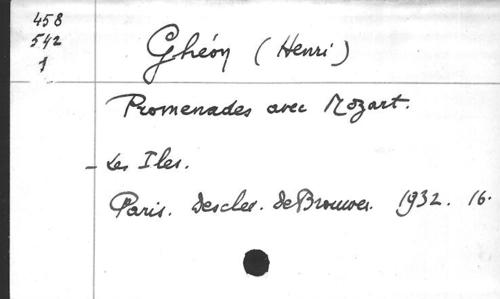 458
542
1
Ghéon (Henri)
Promenades avec Mozart.
- Les Iles.
Paris. Desclee. de Brouwer. 1932. 16.